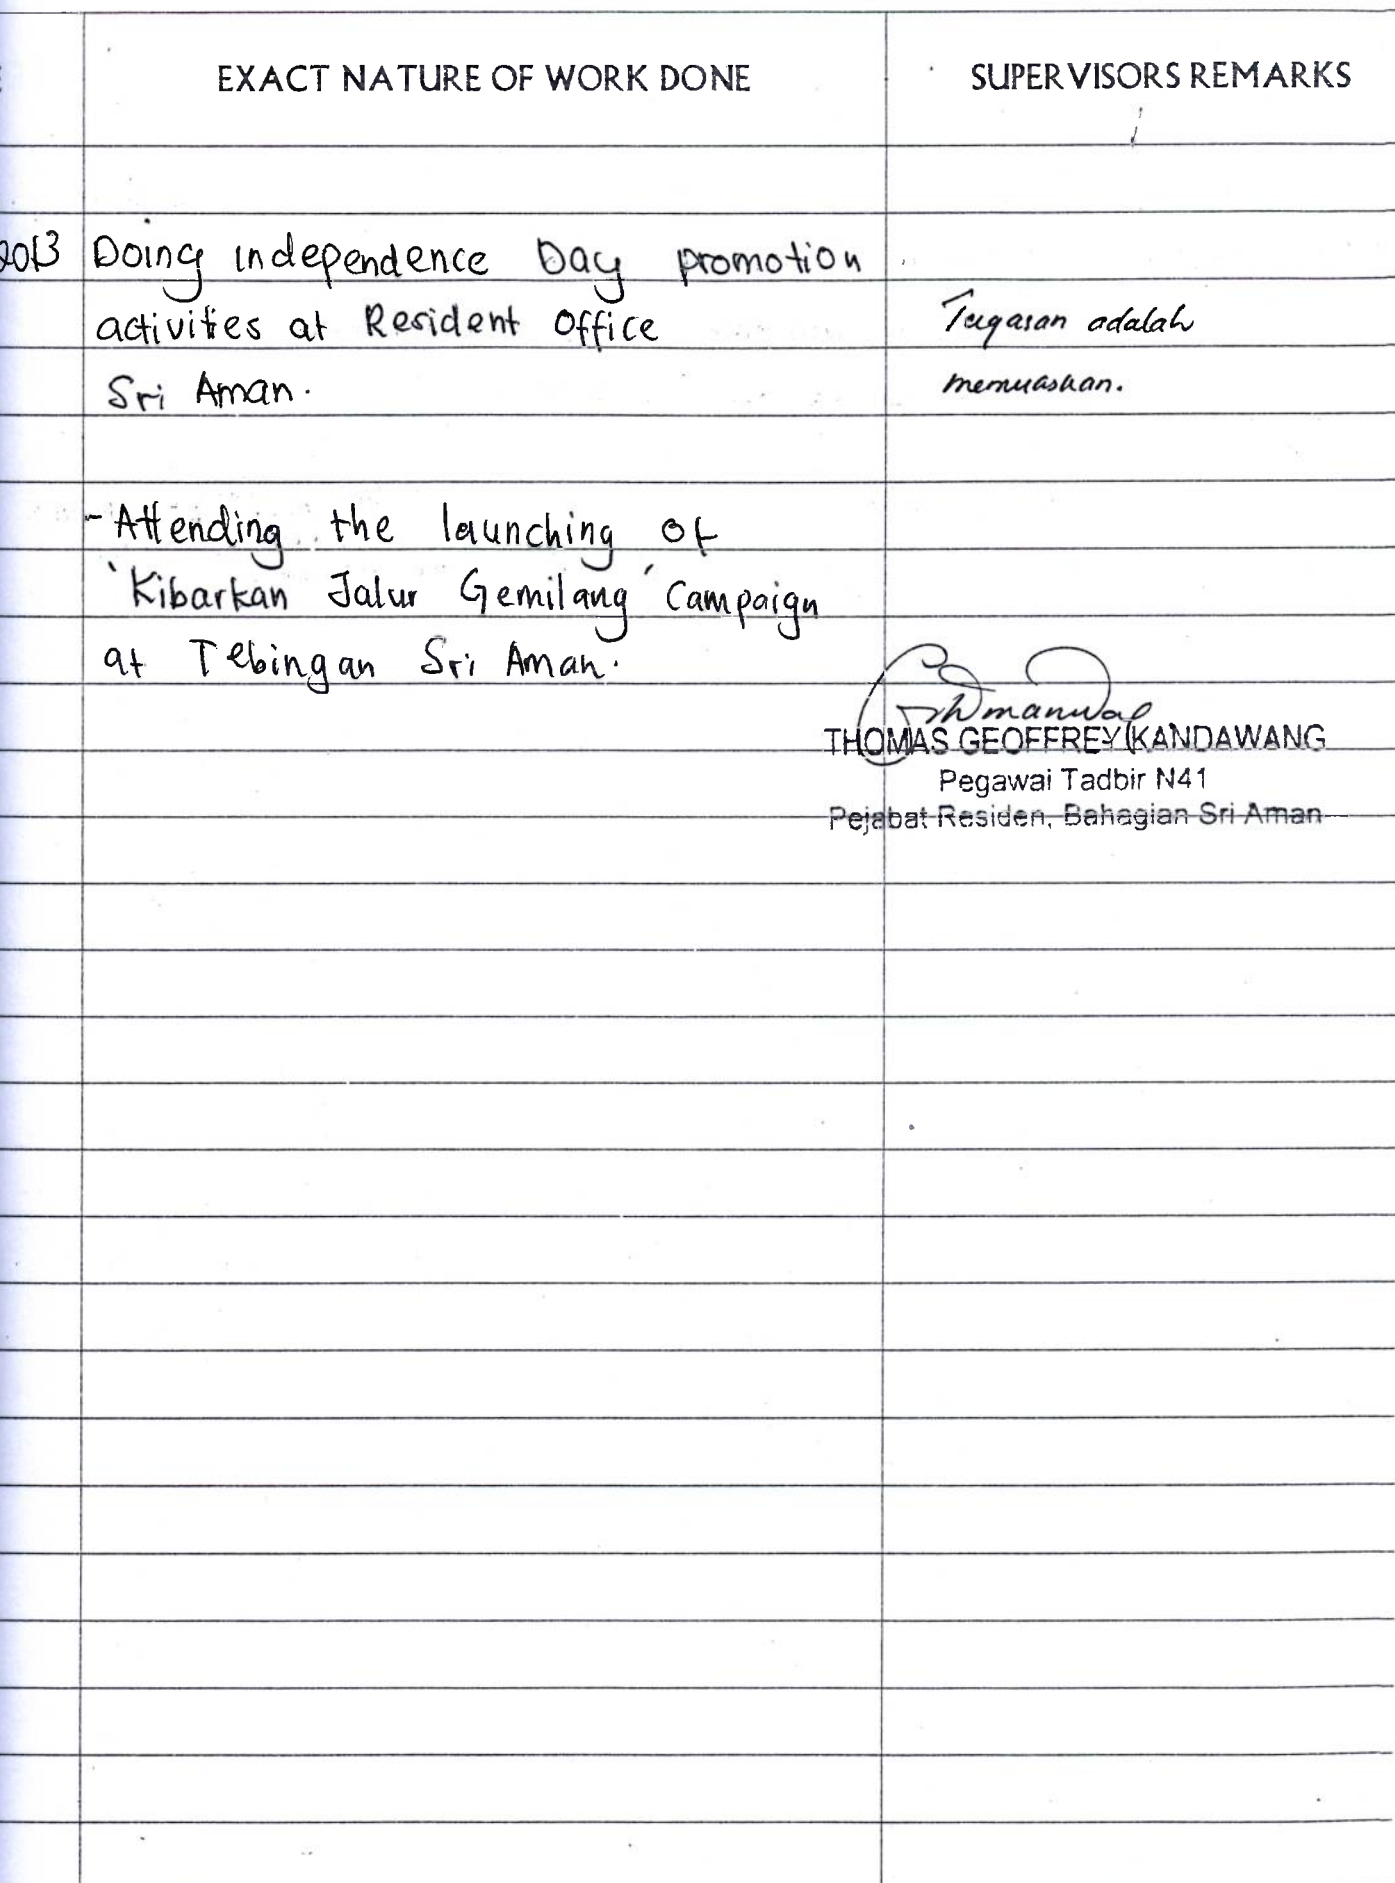 EXACT NATURE OF WORK DONE
SUPERVISORS REMARKS
2013 Doing independence Day promotion
activities at Resident Office
Sri Aman.
Tugasan adalah
memuaskan.
- Attending the launching of
'Kibarkan Jalur Gemilang' Campaign
at Tebingan Sri Aman.
THOMAS GEOFFREY KANDAWANG
Pegawai Tadbir N41
Pejabat Residen, Bahagian Sri Aman